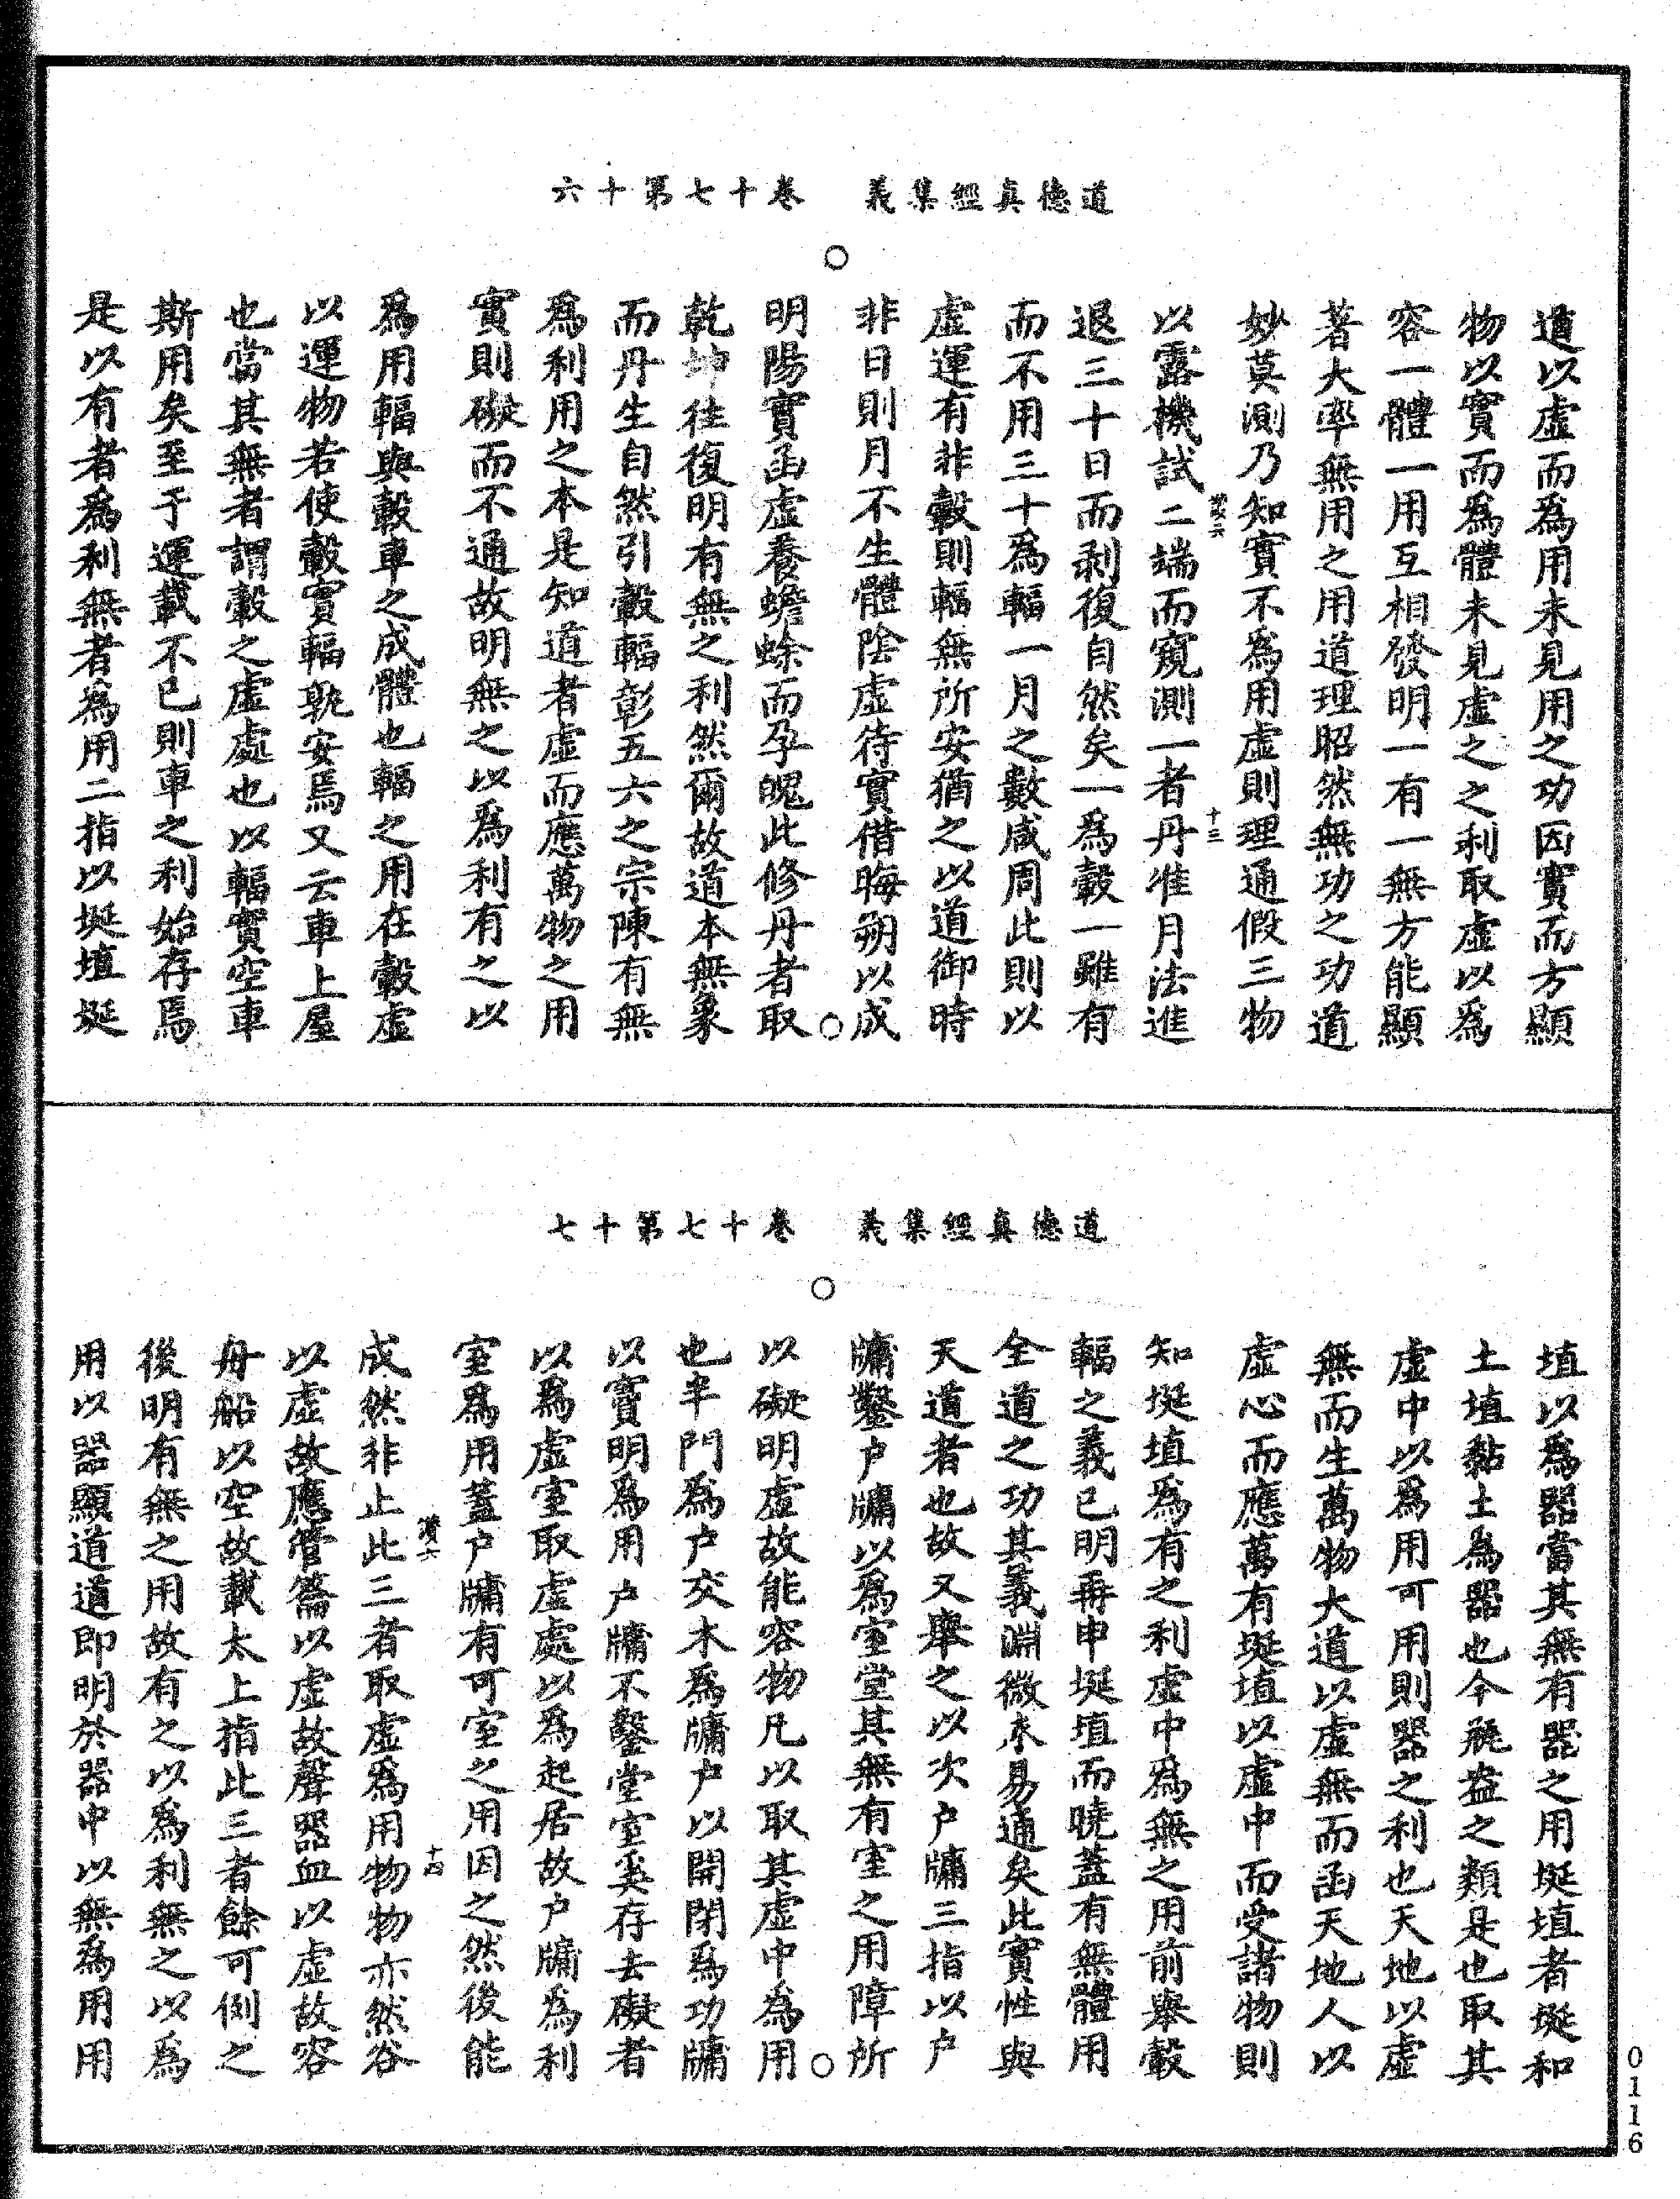 道德真經集義　卷十七第十六
道以虛而爲用未見用之功因實而方顯
物以實而爲體未見虛之之利取虛以爲
容一體一用互相發明一有一無方能顯
著大率無用之用道理昭然無功之功道
妙莫測乃知實不爲用虛則理通假三物
以露機試二端而窺測一者丹准月法進
退三十日而剥復自然矣一爲轂一雖有
而不用三十爲輻一月之數咸周此則以
虛運有非轂則輻無所安猶之以道御時
非日則月不生體陰虛待實借晦朔以成
明陽實函虛養蟾蜍而孕魄此修丹者取
乾坤往復明有無之利然爾故道本無象
而丹生自然引轂輻彰五六之宗陳有無
爲利用之本是知道者虛而應萬物之用
實則礙而不通故明無之以爲利有之以
爲用輻與轂車之成體也輻之用在轂虛
以運物若使轂實輻孰安焉又云車上屋
也當其無者謂轂之虛處也以輻實空車
斯用矣至于運載不已則車之利始存焉
是以有者爲利無者爲用二指以埏埴埏
十三
道德真經集義　卷十七第十七
埴以爲器當其無有器之用埏埴者埏和
土埴黏土為器也今瓶盎之類是也取其
虛中以爲用可用則器之利也天地以虛
無而生萬物大道以虛無而函天地人以
虛心而應萬有埏埴以虛中而受諸物則
知埏埴爲有之利虛中為無之用前舉轂
輻之義已明再申埏埴而曉蓋有無體用
全道之功其義淵微未易通矣此實性與
天道者也故又舉之以次户牖三指以户
牖鑿户牖以爲室堂其無有室之用障所
以礙明虛故能容物凡以取其虛中為用
也半門爲户交木爲牖户以開閉爲功牖
以實明爲用户牖不鑿堂室奚存去礙者
以爲虛室取虛處以爲起居故户牖爲利
室爲用蓋户牖有可室之用因之然後能
成然非止此三者取虛爲用物物亦然谷
以虛故應管籥以虛故聲器皿以虛故容
舟船以空故載太上指此三者餘可例之
後明有無之用故有之以爲利無之以爲
用以器顯道道即明於器中以無爲用用
十四
0116